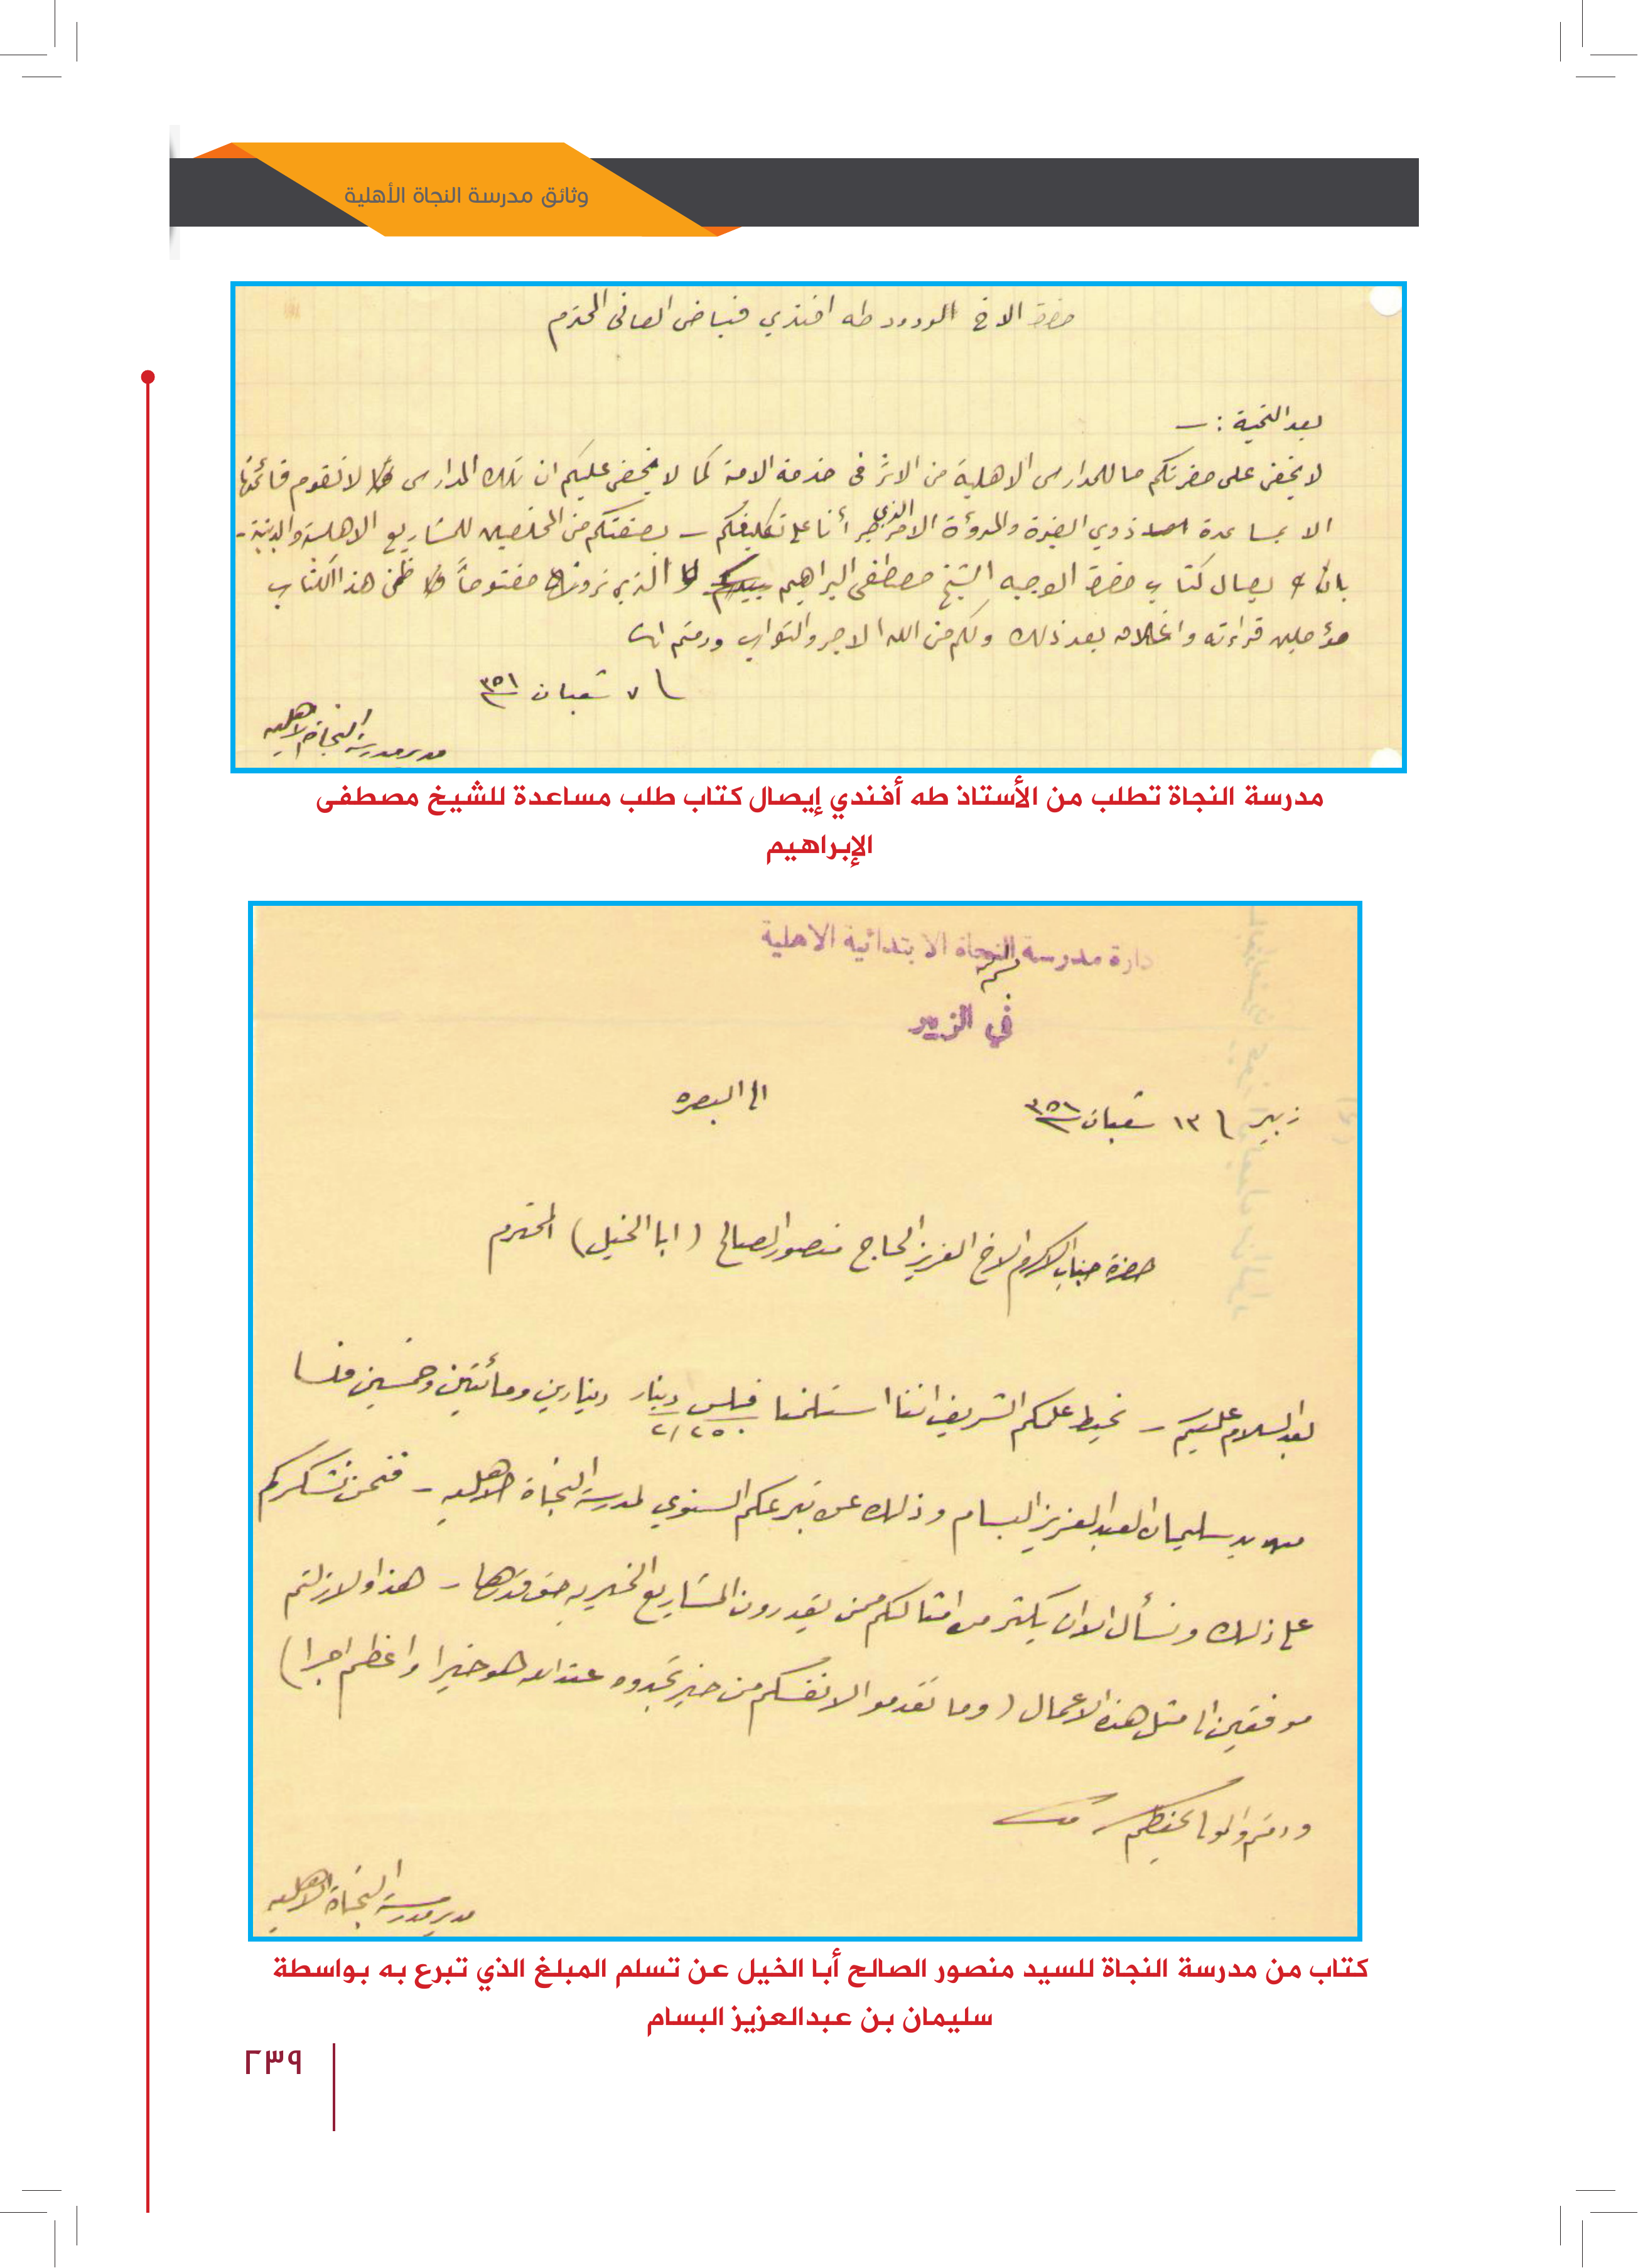 وثائق مدرسة النجاة الأهلية
حضرة الاخ الودود طه افندي فياض العاني المحترم
بعد التحية : –
لا يخفى على حضرتكم ما للمدارس الاهلية من الاثر في خدمة الامة كما لا يخفى عليكم ان تلك المدارس لا تقوم قائمتها
الا بمساعدة ذوي الغيرة والمروأة الامر الذي أنا على تكليفكم – بصفتكم من المخلصين للمشاريع الاهلية والدينية –
بايصال كتاب حضرة الوجيه الشيخ مصطفى البراهيم الذي ترونه مفتوحاً ضمن هذا الكتاب
مؤملين قراءته واغلاقه بعد ذلك ولكم من الله الاجر والثواب ودمتم
٧ شعبان ٣٥١
مدير مدرسة النجاة الاهلية
مدرسة النجاة تطلب من الأستاذ طه أفندي إيصال كتاب طلب مساعدة للشيخ مصطفى
الإبراهيم
دارة مدرسة النجاة الابتدائية الاهلية
في الزبير
زبير ١٣ شعبان ٣٥١ الى البصره
حضرة جناب الاكرم الاخ العزيز الحاج منصور الصالح ( ابا الخيل ) المحترم
بعد السلام عليكم – نحيط علمكم الشريف اننا استلمنا فلس دينار دينارين ومأتين وخمسين فلسا
٢/٢٥٠
من يد سليمان العبد العزيز البسام وذلك عن تبرعكم السنوي لمدرسة النجاة الاهلية – فنحن نشكركم
على ذلك ونسأل الله ان يكثر من امثالكم ممن يقدرون المشاريع الخيريه حق قدرها – هذا ولا زلتم
موفقين الى مثل هذه الاعمال ( وما تقدموا لانفسكم من خير تجدوه عند الله هو خيرا واعظم اجرا )
ودمتم والمولى يحفظكم
مدير مدرسة النجاة الاهلية
كتاب من مدرسة النجاة للسيد منصور الصالح أبا الخيل عن تسلم المبلغ الذي تبرع به بواسطة
سليمان بن عبدالعزيز البسام
٢٣٩